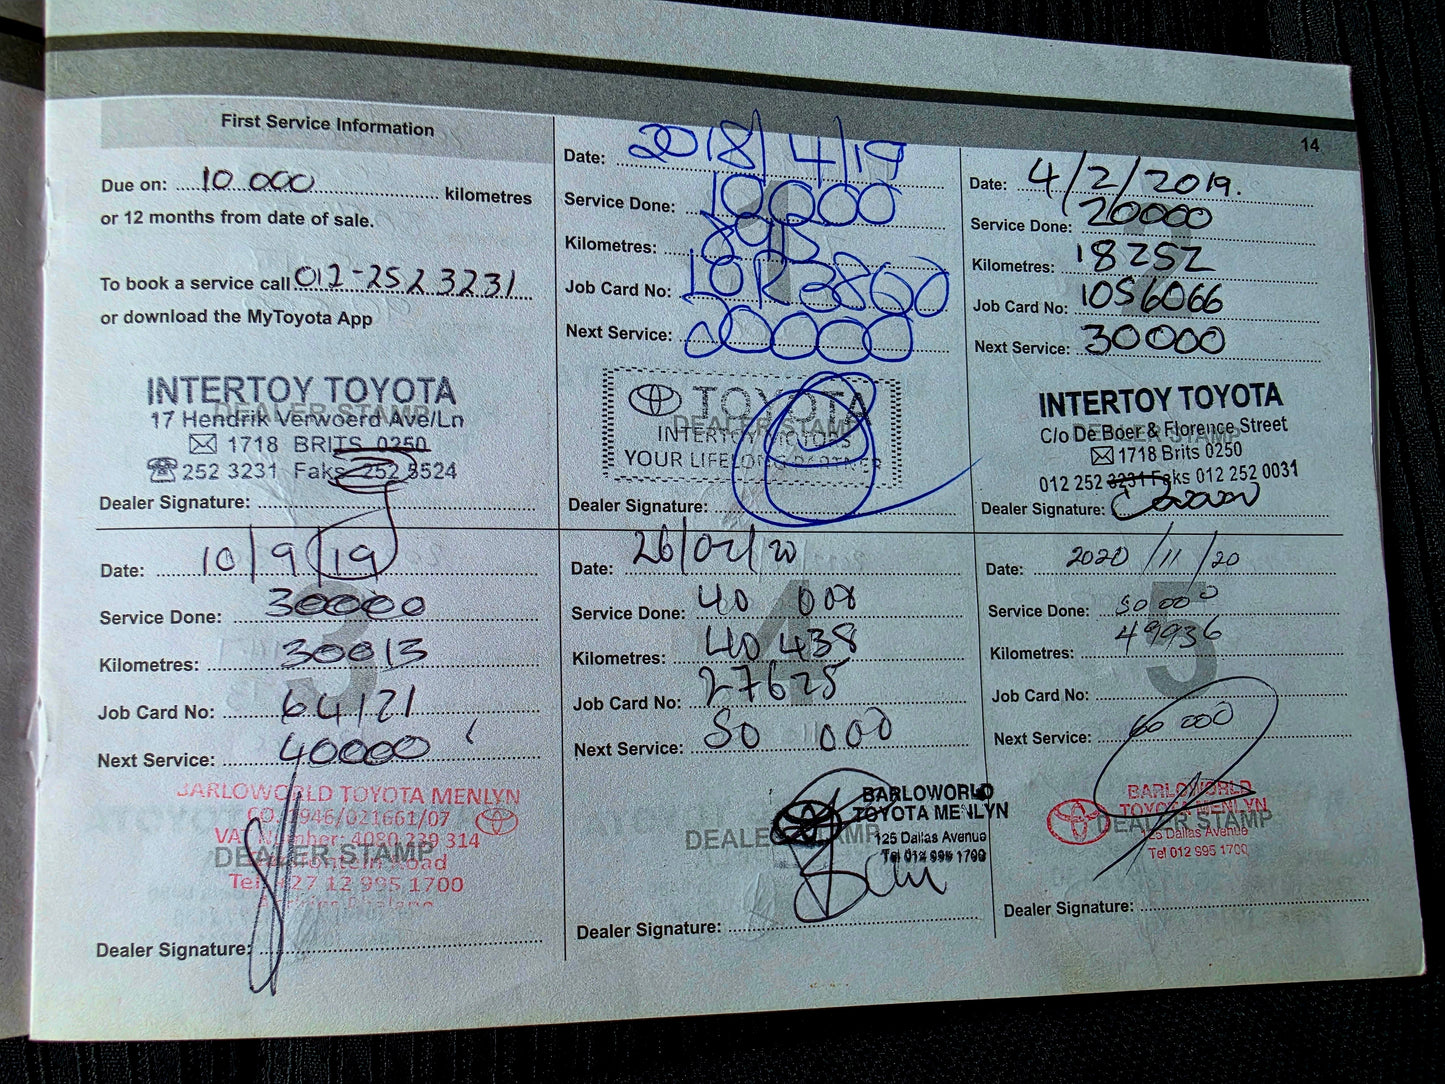 14
First Service Information
Due on: 10 000 kilometres
or 12 months from date of sale.
To book a service call 012-252 3231
or download the MyToyota App
INTERTOY TOYOTA
DEALER STAMP
17 Hendrik Verwoerd Ave/Ln
1718 BRITS 0250
252 3231 Faks 252 5524
Dealer Signature:
1
Date: 2018/4/19
Service Done: 10000
Kilometres:
Job Card No:
Next Service: 20000
TOYOTA
DEALER STAMP
INTERTOY MOTORS
YOUR LIFELONG PARTNER
Dealer Signature:
2
Date: 4/2/2019.
Service Done: 20000
Kilometres: 18252
Job Card No: 1056066
Next Service: 30000
INTERTOY TOYOTA
C/o De Boer & Florence Street
DEALER STAMP
1718 Brits 0250
012 252 3231 Faks 012 252 0031
Dealer Signature:
3
Date: 10/9/19
Service Done: 30000
Kilometres: 30013
Job Card No: 64121
Next Service: 40000
BARLOWORLD TOYOTA MENLYN
CO. 1946/021661/07
VAT Number: 4080 239 314
DEALER STAMP
Road
Tel: +27 12 995 1700
Dealer Signature:
4
Date: 26/02/20
Service Done: 40 000
Kilometres: 40 438
Job Card No: 27625
Next Service: 50 000
BARLOWORLD
TOYOTA MENLYN
DEALER STAMP
125 Dallas Avenue
Tel 012 995 1700
Dealer Signature:
5
Date: 2020/11/20
Service Done: 50 000
Kilometres: 49936
Job Card No:
Next Service: 60 000
BARLOWORLD
TOYOTA MENLYN
DEALER STAMP
125 Dallas Avenue
Tel 012 995 1700
Dealer Signature: